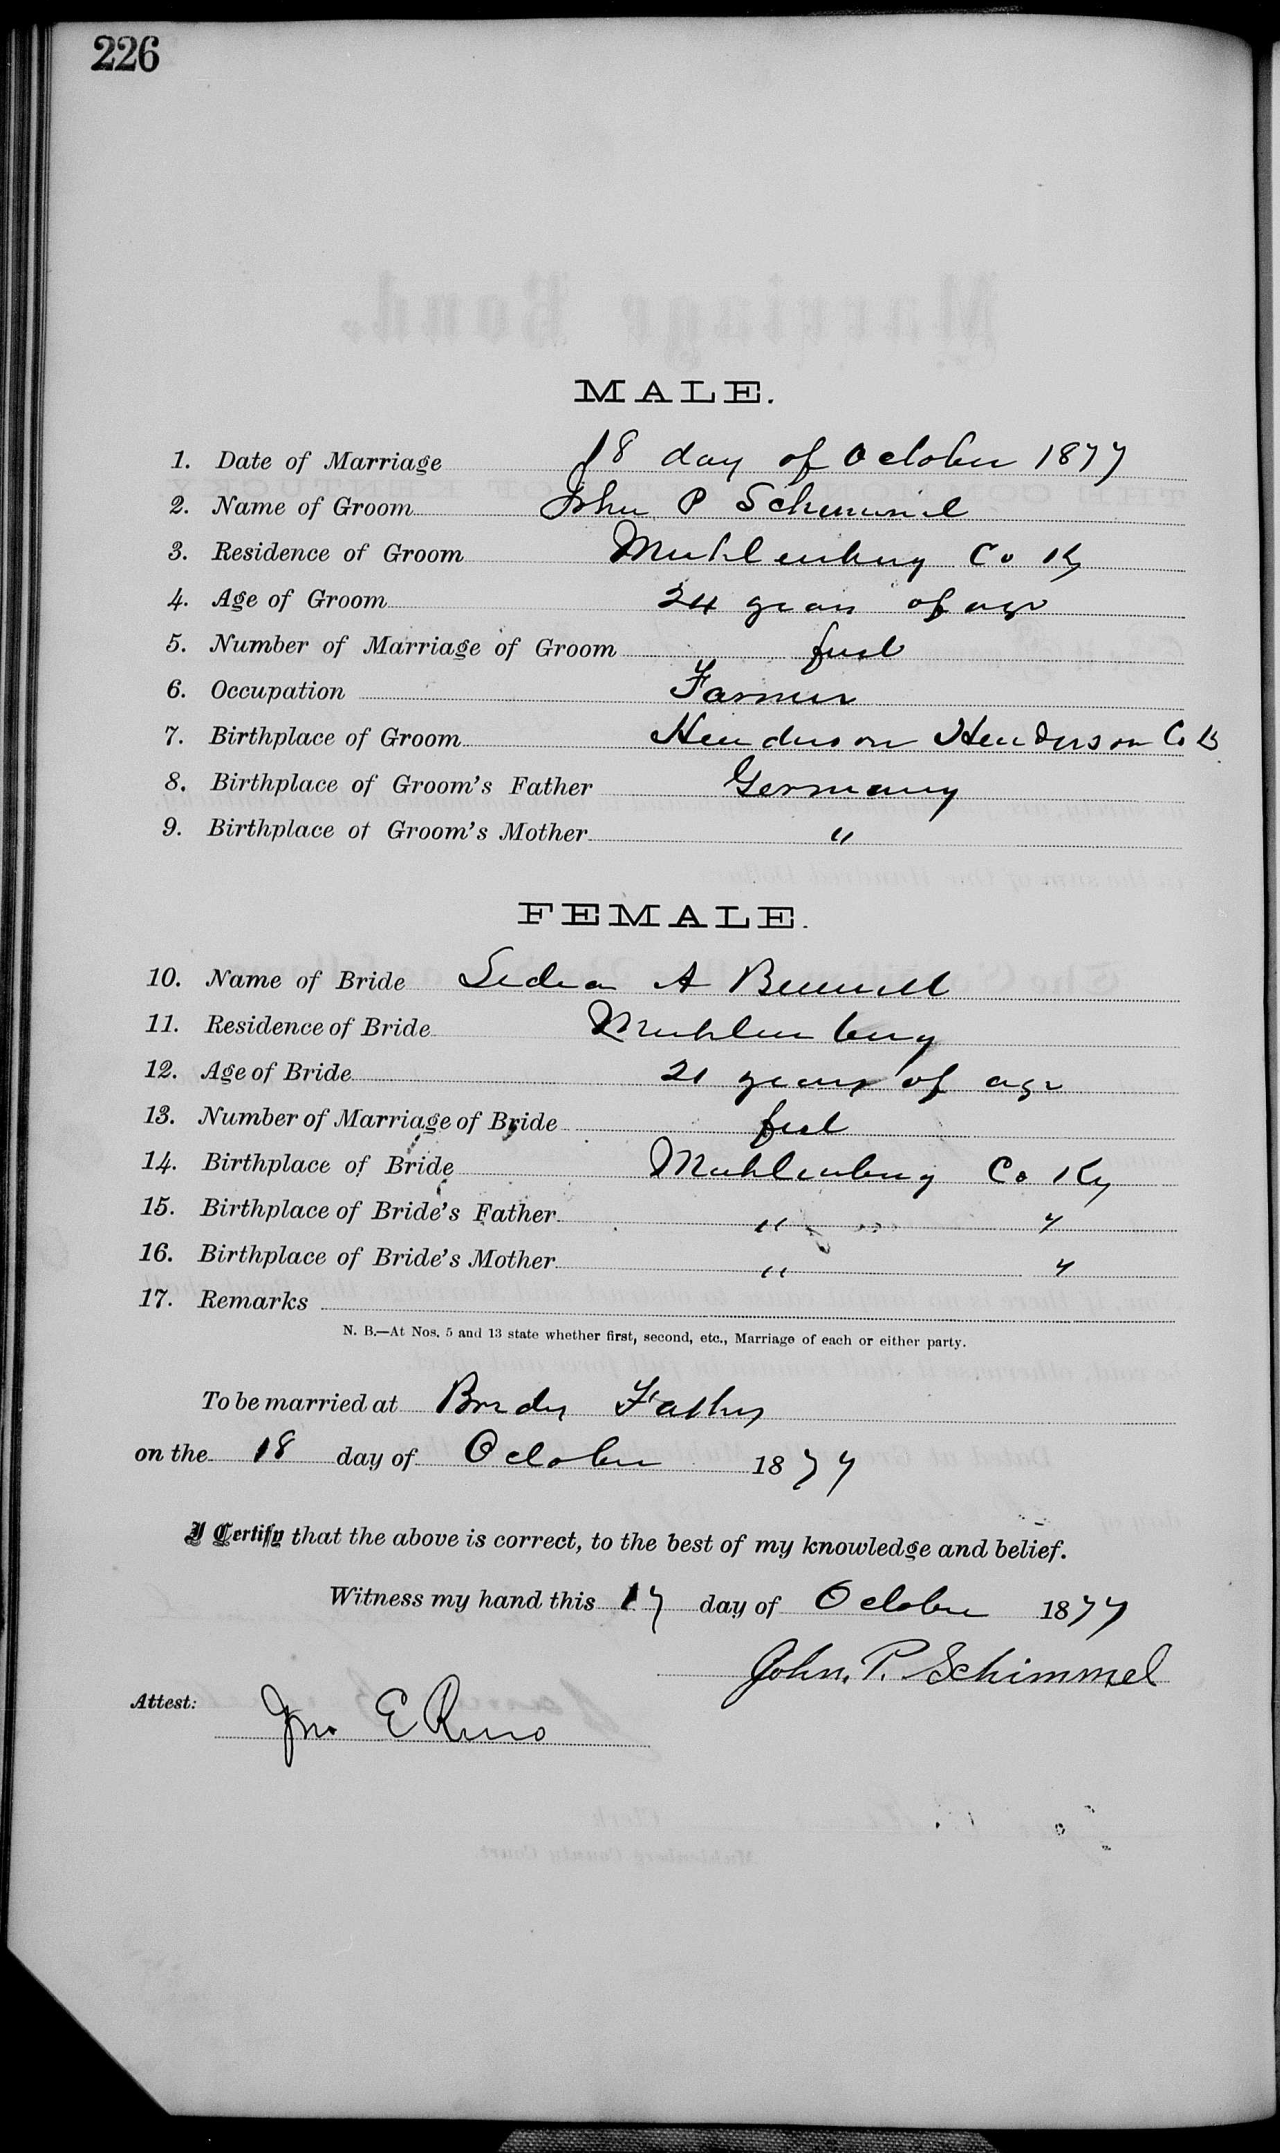 226
MALE.
1. Date of Marriage 18 day of October 1877
2. Name of Groom John P Schimmel
3. Residence of Groom Muhlenburg Co Ky
4. Age of Groom 24 years of age
5. Number of Marriage of Groom first
6. Occupation Farmer
7. Birthplace of Groom Henderson Henderson Co Ky
8. Birthplace of Groom's Father Germany
9. Birthplace of Groom's Mother "
FEMALE.
10. Name of Bride A
11. Residence of Bride Muhlenburg
12. Age of Bride 21 years of age
13. Number of Marriage of Bride first
14. Birthplace of Bride Muhlenburg Co Ky
15. Birthplace of Bride's Father " "
16. Birthplace of Bride's Mother " "
17. Remarks
N. B.—At Nos. 5 and 13 state whether first, second, etc., Marriage of each or either party.
To be married at Brides Fathers
on the 18 day of October 1877
I Certify that the above is correct, to the best of my knowledge and belief.
Witness my hand this 17 day of October 1877
John. P. Schimmel
Attest:
Jno E Reno